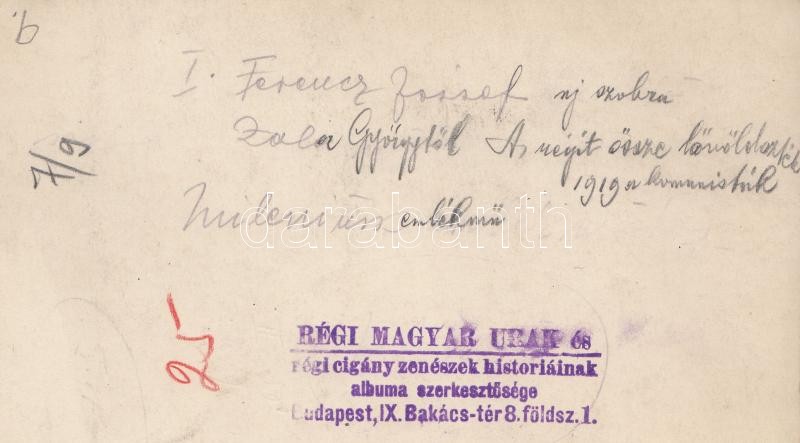 b
I. Ferencz József uj szobra
Zala Györgytől A régit össze lövöldözték
1919 a kommunisták
emlékmű
7/9
25
darabanth
RÉGI MAGYAR URAK és
régi cigány zenészek historiáinak
albuma szerkesztősége
Budapest, IX. Bakács-tér 8. földsz. 1.